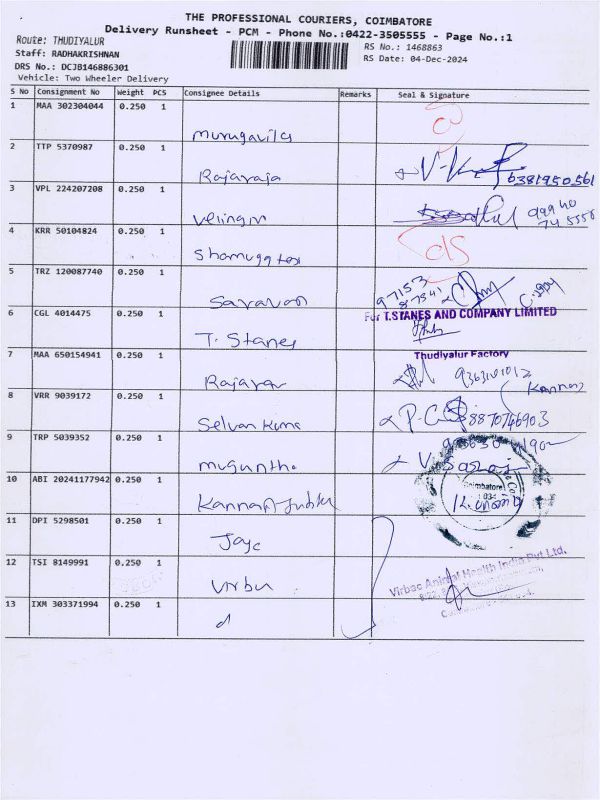 THE PROFESSIONAL COURIERS, COIMBATORE
Delivery Runsheet - PCM - Phone No.:0422-3505555 - Page No.:1
Route: THUDIYALUR
Staff: RADHAKRISHNAN
RS No.: 1468863
DRS No.: DCJB146886301
RS Date: 04-Dec-2024
Vehicle: Two Wheeler Delivery
S No Consignment No Weight PCS Consignee Details Remarks Seal & Signature
1 MAA 302304044 0.250 1
Murugavilas
2 TTP 5370987 0.250 1
Rajaraja 6381950561
3 VPL 224207208 0.250 1
Velingiri 99940
745558
4 KRR 50104824 0.250 1
ds
5 TRZ 120087740 0.250 1
Saravan 97153
87541
6 CGL 4014475 0.250 1 For T.STANES AND COMPANY LIMITED
T. Stanes
7 MAA 650154941 0.250 1 Thudiyalur Factory
Rajarar
8 VRR 9039172 0.250 1 Kannan
Selvan Kuma 8870746903
9 TRP 5039352 0.250 1
Muguntha V. Saroj
10 ABI 20241177942 0.250 1 Coimbatore
11 DPI 5298501 0.250 1
Jaye
12 TSI 8149991 0.250 1 Virbac Animal Health India Pvt Ltd.
Virbu
13 IXM 303371994 0.250 1
d